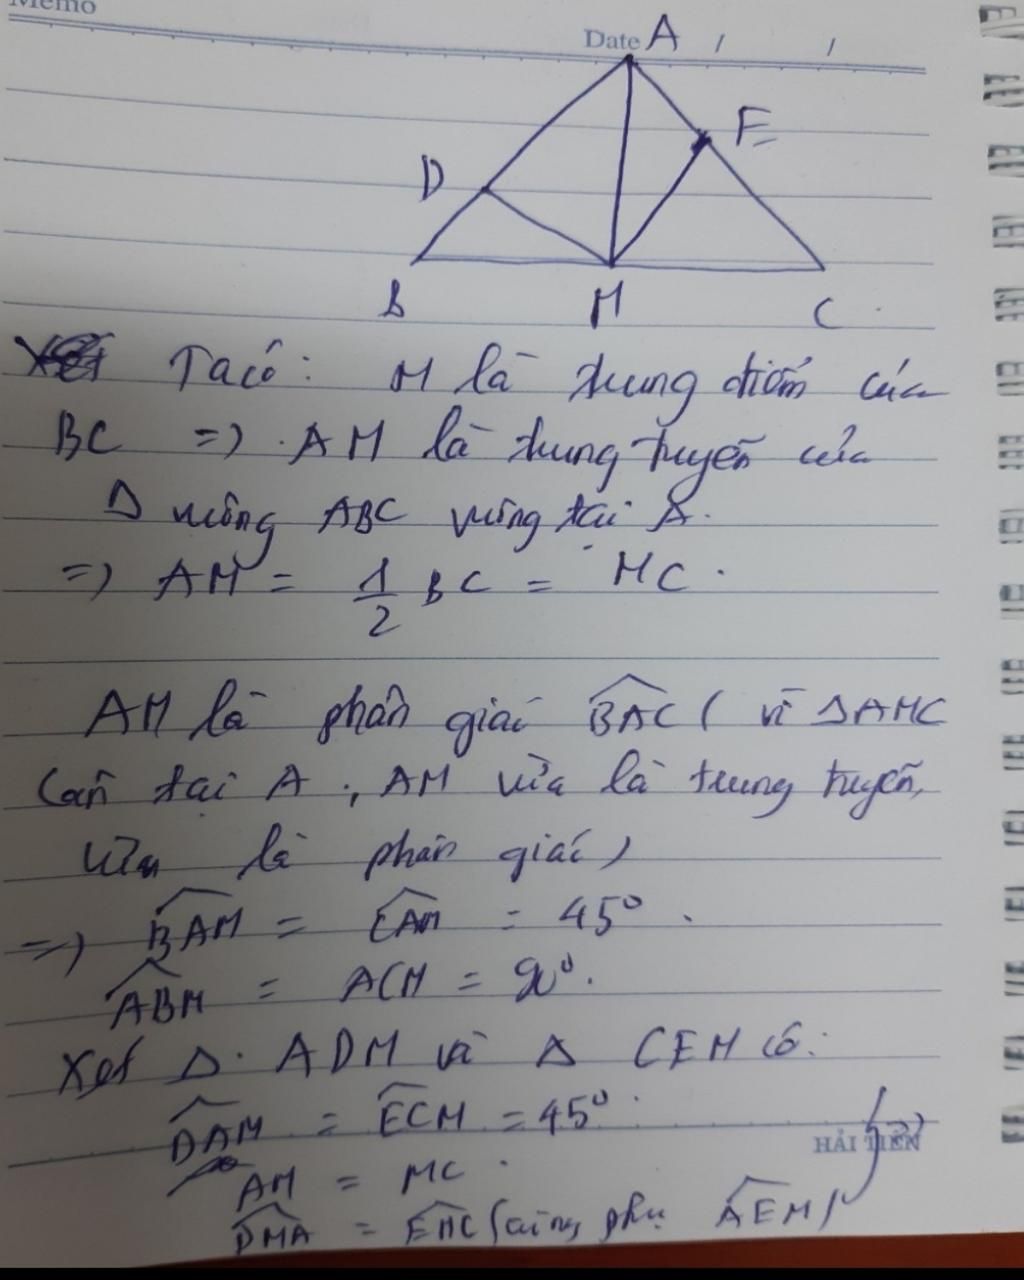 Memo
Date A / /
E
D
B M C
Ta có: M là trung điểm của
BC => AM là trung tuyến của
Δ vuông ABC vuông tại A.
=> AM = 1/2 BC = MC.
AM là phân giác BAC ( vì ΔAMC
Cân tại A, AM vừa là trung tuyến,
vừa là phân giác)
=> BAM = CAM = 45°.
ABM = ACM = 90°.
Xét Δ ADM và Δ CEM có:
DAM = ECM = 45°
HẢI TIẾN
AM = MC.
DMA = EMC (cùng phụ AEM)